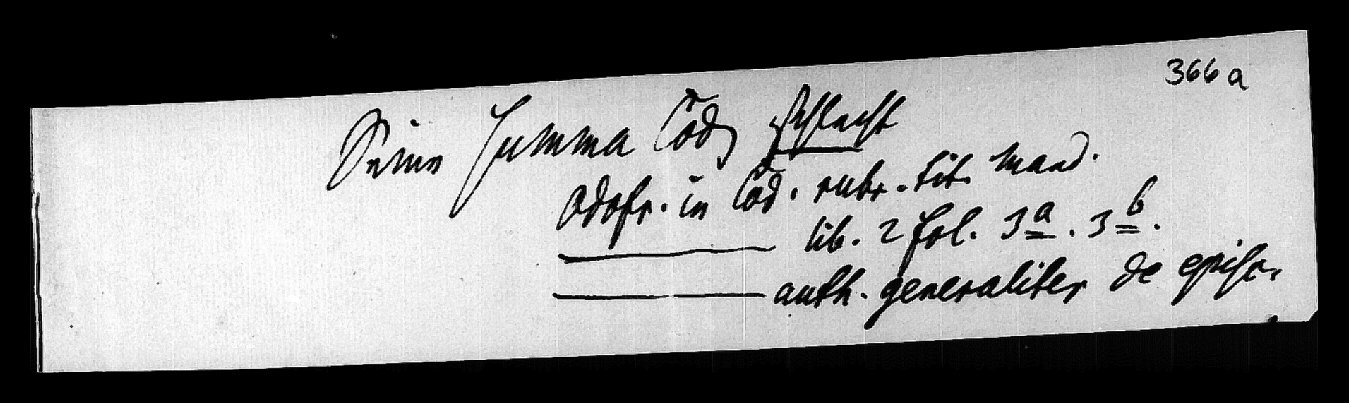 366a
Seine Summa Cod schlecht
Odofr. in Cod. rubr. tit. mand.
lib. 2 fol. 3a. 3b.
auth. generaliter de episc.